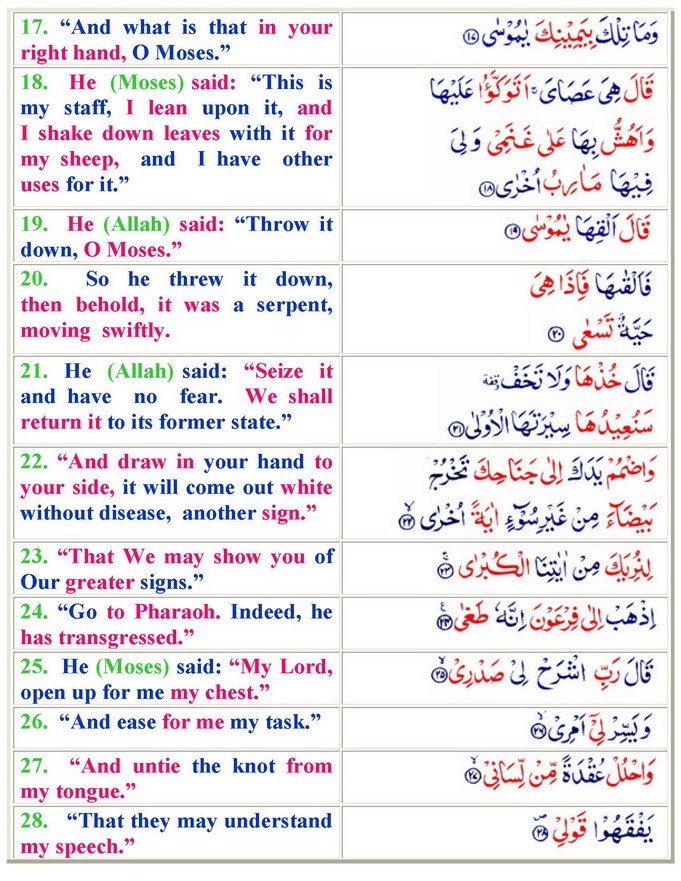 17. “And what is that in your
right hand, O Moses.”
وَمَا تِلْكَ بِيَمِيْنِكَ يٰمُوْسٰى ﴿۱۷﴾
18. He (Moses) said: “This is
my staff, I lean upon it, and
I shake down leaves with it for
my sheep, and I have other
uses for it.”
قَالَ هِىَ عَصَاىَ ۚ اَتَوَكَّؤُا عَلَيْهَا
وَاَهُشُّ بِهَا عَلٰى غَنَمِىْ وَلِىَ
فِيْهَا مَاٰرِبُ اُخْرٰى ﴿۱۸﴾
19. He (Allah) said: “Throw it
down, O Moses.”
قَالَ اَلْقِهَا يٰمُوْسٰى ﴿۱۹﴾
20. So he threw it down,
then behold, it was a serpent,
moving swiftly.
فَاَلْقٰٮهَا فَاِذَا هِىَ
حَيَّةٌ تَسْعٰى ﴿۲۰﴾
21. He (Allah) said: “Seize it
and have no fear. We shall
return it to its former state.”
قَالَ خُذْهَا وَلَا تَخَفْ وقفة
سَنُعِيْدُهَا سِيْرَتَهَا الْاُوْلٰى ﴿۲۱﴾
22. “And draw in your hand to
your side, it will come out white
without disease, another sign.”
وَاضْمُمْ يَدَكَ اِلٰى جَنَاحِكَ تَخْرُجْ
بَيْضَآءَ مِنْ غَيْرِ سُوْٓءٍ اٰيَةً اُخْرٰى ۙ﴿۲۲﴾
23. “That We may show you of
Our greater signs.”
لِنُرِيَكَ مِنْ اٰيٰتِنَا الْكُبْرٰى ۚ﴿۲۳﴾
24. “Go to Pharaoh. Indeed, he
has transgressed.”
اِذْهَبْ اِلٰى فِرْعَوْنَ اِنَّهٗ طَغٰى ﴿۲۴﴾
25. He (Moses) said: “My Lord,
open up for me my chest.”
قَالَ رَبِّ اشْرَحْ لِىْ صَدْرِىْ ۙ﴿۲۵﴾
26. “And ease for me my task.”
وَيَسِّرْ لِىْۤ اَمْرِىْ ۙ﴿۲۶﴾
27. “And untie the knot from
my tongue.”
وَاحْلُلْ عُقْدَةً مِّنْ لِّسَانِىْ ۙ﴿۲۷﴾
28. “That they may understand
my speech.”
يَفْقَهُوْا قَوْلِىْ ۖ﴿۲۸﴾